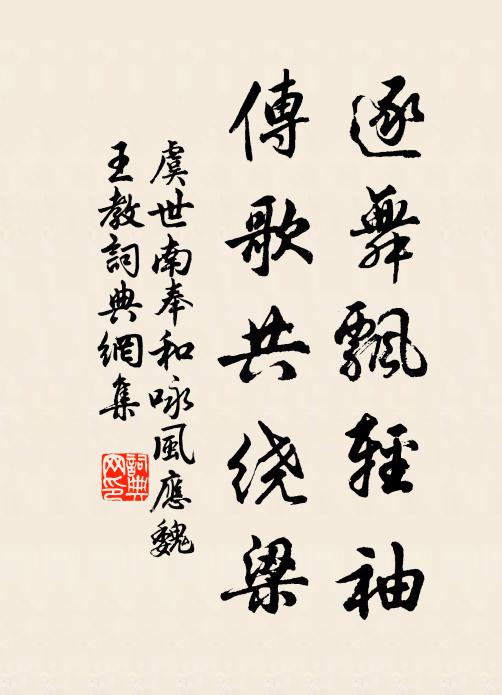 逐舞飄輕袖
傳歌共绕梁
虞世南奉和咏風應魏
王教詞典網集
詞典网印